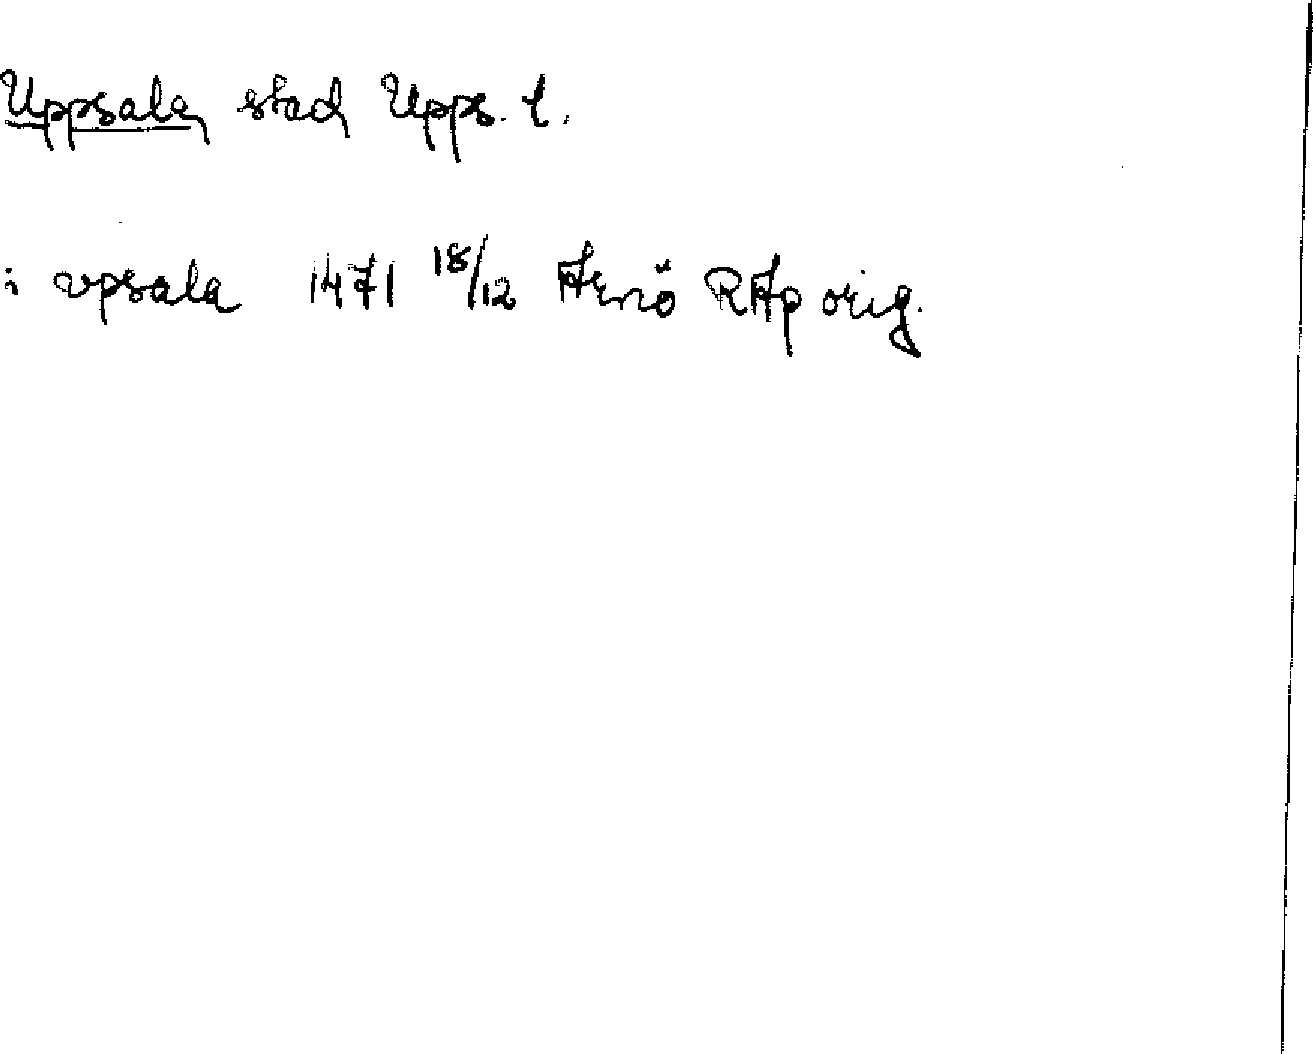 Uppsala stad Upps. l.
i vpsala 1471 18/12 Arnö RAp orig.